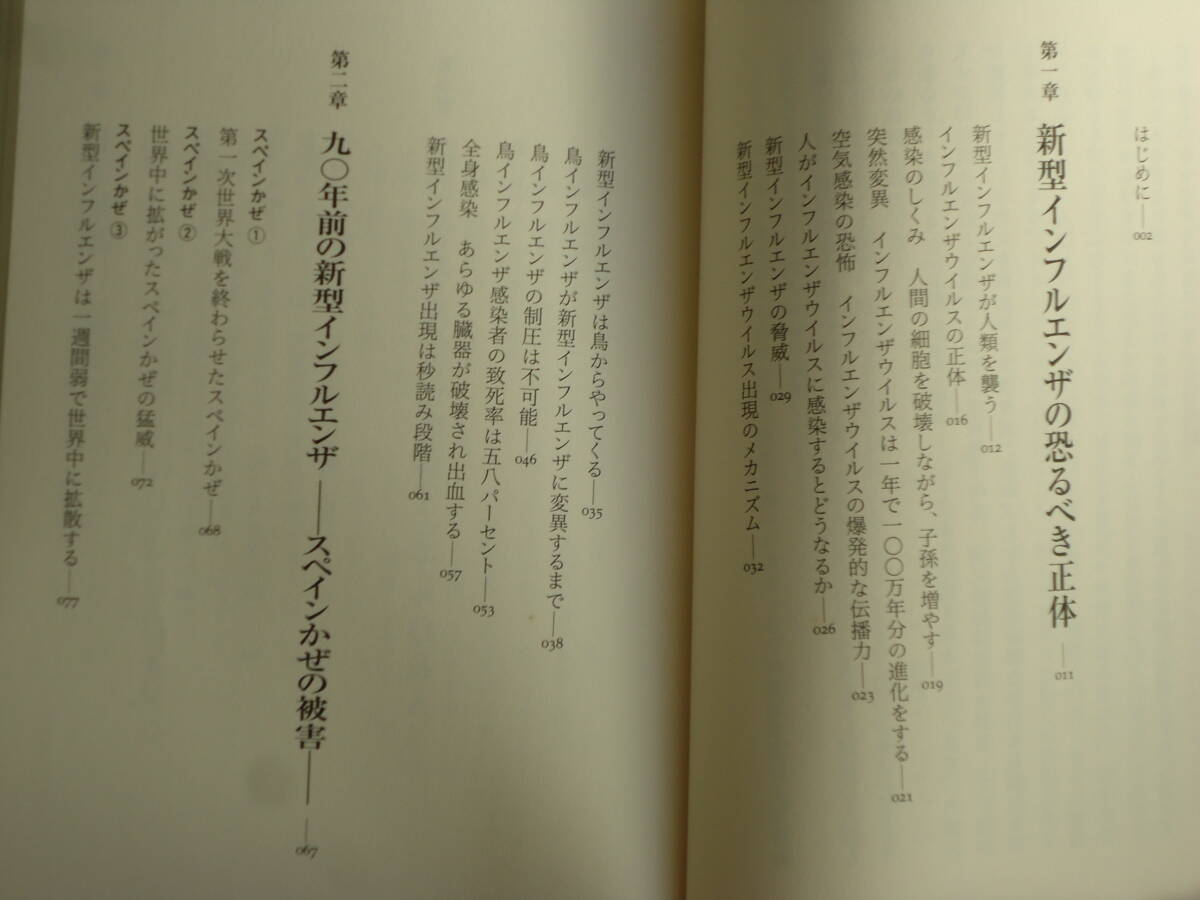 はじめに——002
第一章　新型インフルエンザの恐るべき正体——011
新型インフルエンザが人類を襲う——012
インフルエンザウイルスの正体——016
感染のしくみ　人間の細胞を破壊しながら、子孫を増やす——019
突然変異　インフルエンザウイルスは一年で一〇〇万年分の進化をする——021
空気感染の恐怖　インフルエンザウイルスの爆発的な伝播力——023
人がインフルエンザウイルスに感染するとどうなるか——026
新型インフルエンザの脅威——029
新型インフルエンザウイルス出現のメカニズム——032
新型インフルエンザは鳥からやってくる——035
鳥インフルエンザが新型インフルエンザに変異するまで——038
鳥インフルエンザの制圧は不可能——046
鳥インフルエンザ感染者の致死率は五八パーセント——053
全身感染　あらゆる臓器が破壊され出血する——057
新型インフルエンザ出現は秒読み段階——061
第二章　九〇年前の新型インフルエンザ——スペインかぜの被害——067
スペインかぜ①
第一次世界大戦を終わらせたスペインかぜ——068
スペインかぜ②
世界中に拡がったスペインかぜの猛威——072
スペインかぜ③
新型インフルエンザは一週間弱で世界中に拡散する——077